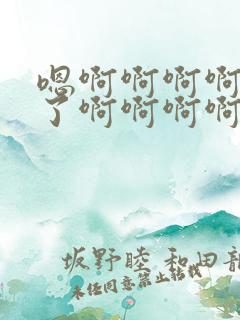 嗯啊啊啊啊
了啊啊啊啊
坂野睦 和田龍
未经同意禁止转载